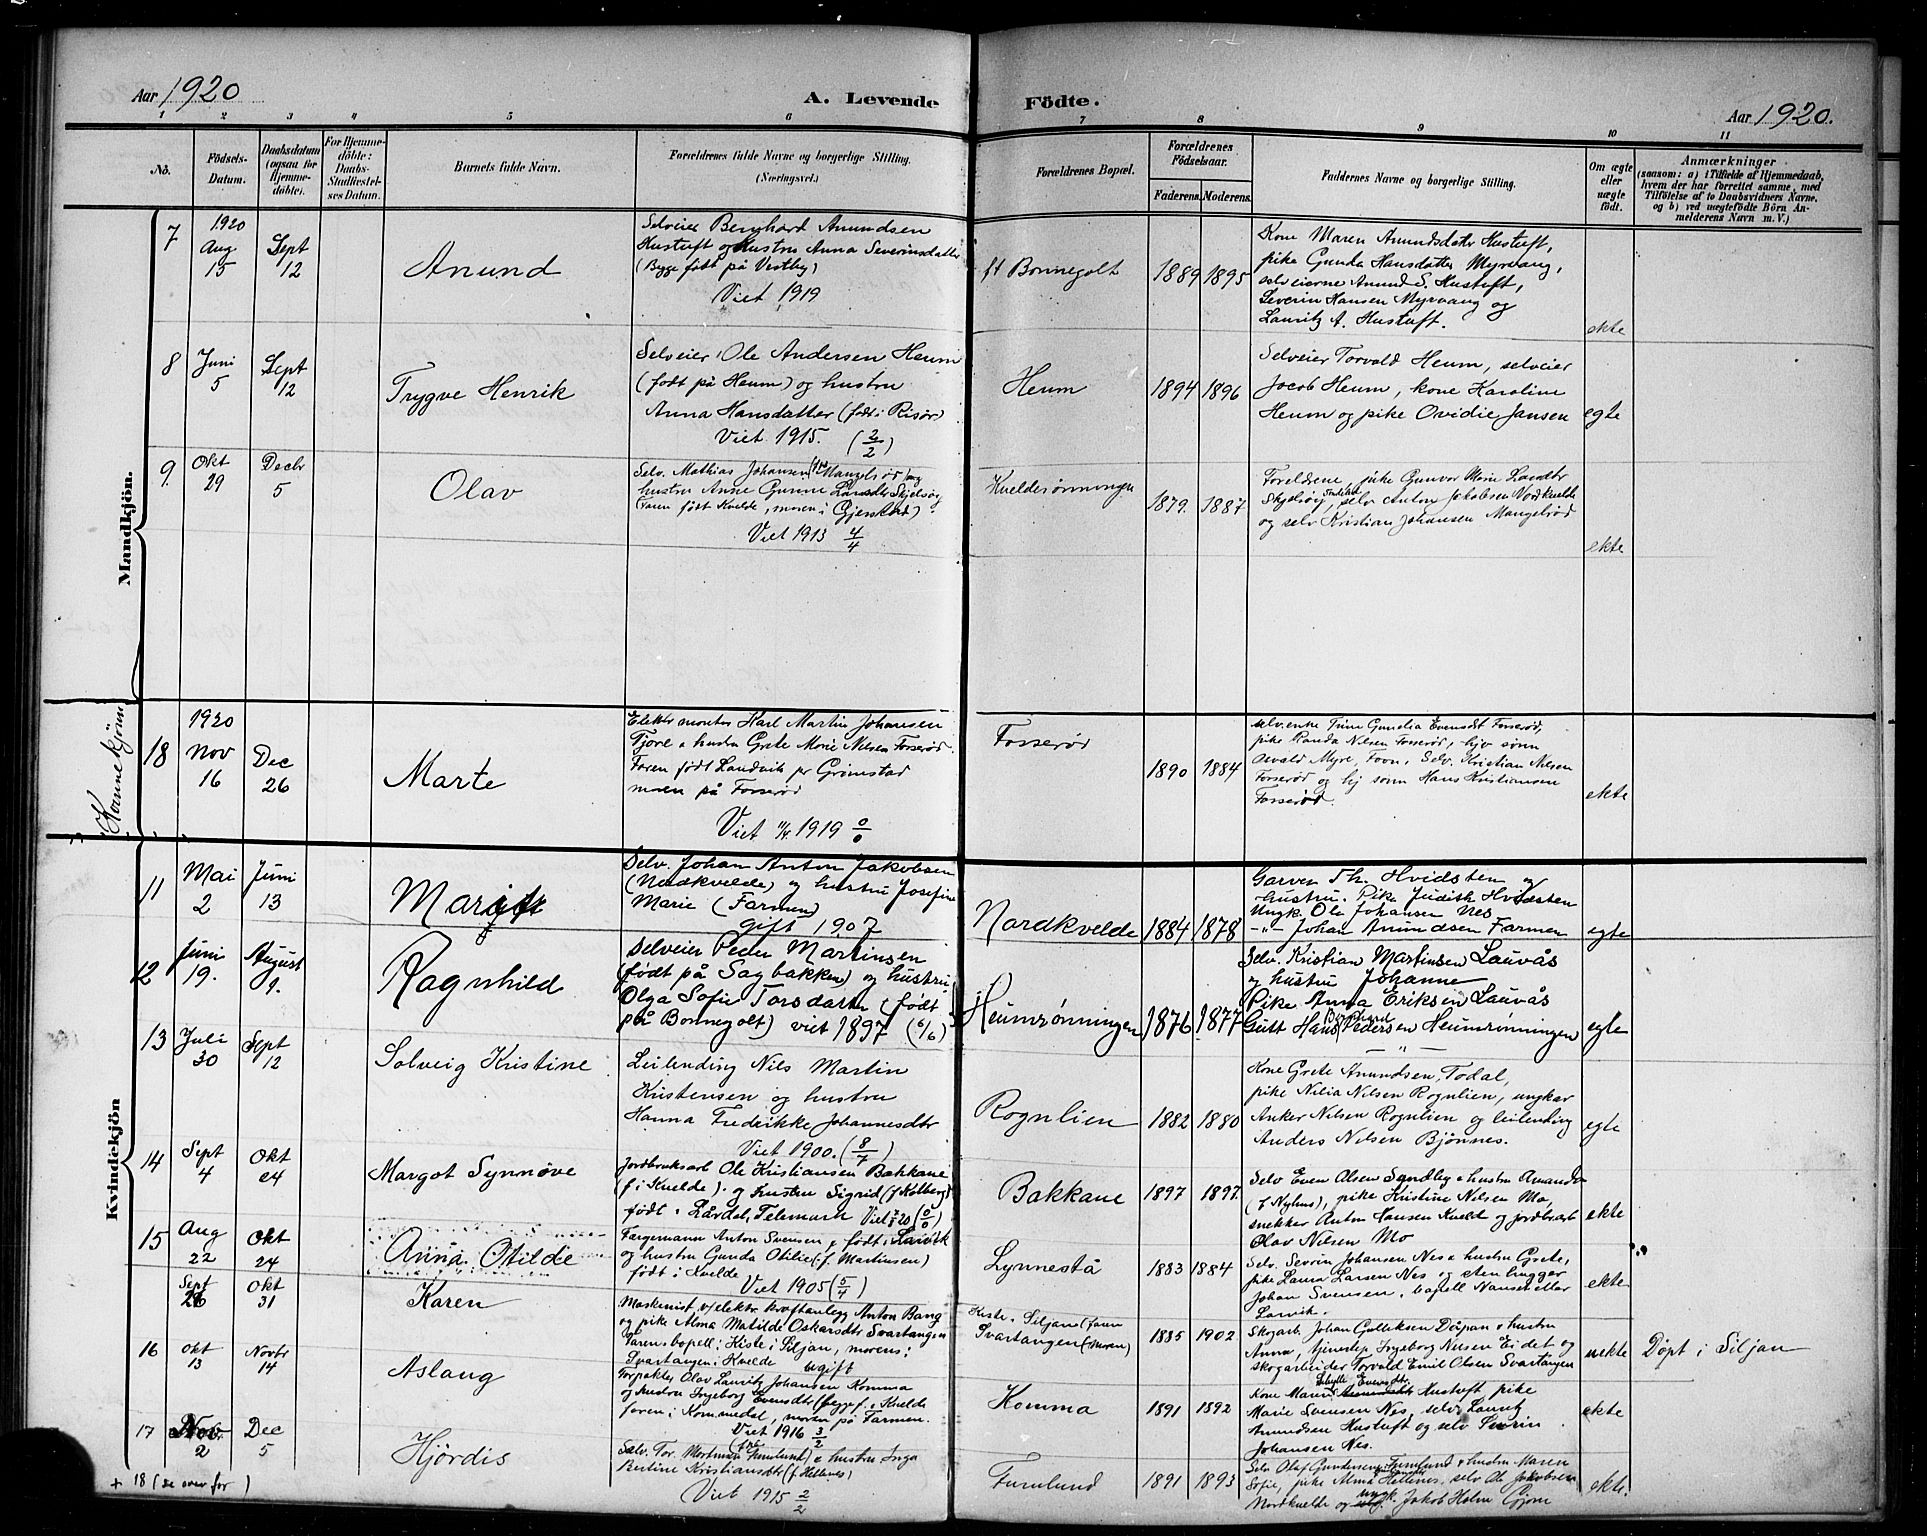 Aar 1920
A. Levende
Födte.
Aar 1920.
1 2 3 4 5 6 7 8 9 10 11
No.
Födsels-
Datum.
Daabsdatum
(ogsaa for
Hjemme-
döbte).
For Hjemme-
döbte:
Daabs-
Stadfæstel-
ses Datum.
Barnets fulde Navn.
Forældrenes fulde Navne og borgerlige Stilling.
(Næringsvei.)
Forældrenes Bopæl.
Forældrenes
Födselsaar.
Faderens. Moderens.
Faddernes Navne og borgerlige Stilling.
Om ægte
eller
uægte
födt.
Anmærkninger
(saasom: a) i Tilfælde af Hjemmedaab,
hvem der har forrettet samme, med
Tilföielse af to Daabsvidners Navne,
og b) ved uægtefödte Börn An-
melderens Navn m. V.)
Mandkjön.
7
1920
Aug
15
Sept
12
Anund
Selveier Berghard Amundsen
Hustuft og hustru Anna Severinsdatter
(Begge født på Vestby)
Viet 1919
Bonnegolt
1889 1895
Kone Maren Amundsdatter Hustuft,
pike Gunda Hansdatter Myrvang,
selveierne Anund S. Hustuft,
Severin Hansen Myrvang og
Lauritz A. Hustuft.
ekte
8
Juni
5
Sept
12
Trygve Henrik
Selveier Ole Andersen Heum
(født på Heum) og hustru
Anna Hansdatter (født i Risør)
Viet 1915. (3/2)
Heum
1894 1896
Selveier Torvald Heum, selveier
Jacob Heum, kone Karoline
Heum og pike Ovidie Jansen
egte
9.
Okt
29
Decbr
5
Olav
Selv. Mathias Johansen Mangelsrød og
hustru Anne Gurine Larsdtr Skjelsøg
(Faren født Kvelde, moren i Gjerstad)
Viet 1913 4/4
Kvelderønningen
1879. 1887
Foreldrene, pike Gunvor Marie Larsdtr
Skjelsøg, selv Anton Jakobsen Nordkvelde
og selv Kristian Johansen Mangelrød
ekte
Kvinnekjønn
18
1920
Nov
16
Dec
26
Marte
Elektr montør Karl Martin Johansen
Tjore o hustru Grete Marie Nilsen Forserød
Faren født Landvik pr Grimstad
moren på Forserød
Viet 11/4 1919 0/0
Forserød
1890 1884
selv. enke Trine Gunelia Evensdt Forserød,
pike Randa Nilsen Forserød, hjv sønn
Osvald Myre, Foon, Selv. Kristian Nilsen
Forserød og hj sønn Hans Kristiansen
Forserød.
ekte
Kvindekjön
11
Mai
2
Juni
13
Marit
Selv. Johan Anton Jakobsen
(Nordkvelde) og hustru Josefine
Marie (Farmen)
Gift 1907
Nordkvelde
1884 1878
Garver Th. Hvidsten og
hustru. Pike Judith Hvidsten
Ungk. Ole Johansen Nes
-"- Johan Anundsen Farmen
egte
12
Juni
19.
August
9.
Ragnhild
Selveier Peder Martinsen
(født på Sagbakken) og hustru
Olga Sofie Torsdatter (født
på Bonnegolt) viet 1897 (6/6)
Heumrønningen
1876 1877
Selv. Kristian Martinsen Lauvås
og hustru Johanne
Pike Anna Eriksen Lauvås
Gutt Hans Pedersen Heumrønningen
egte
13
Juli
30
Sept
12
Solveig Kristine
Leilending Nils Martin
Kristensen og hustru
Hanna Fredrikke Johannesdtr
Viet 1900. (8/7)
Rognlien
1882 1880
Kone Grete Anundsen, Todal,
pike Nilia Nilsen Rognlien, ungkar
Anker Nilsen Rognlien og leilending
Anders Nilsen Bjønnes.
egte
14
Sept
4
Okt
24
Margot Synnøve
Jordbruksarb Ole Kristiansen Bakkane
f i Kvelde). og hustru Sigrid (f Kolberg)
født i Lårdal, Telemark Viet 20 (0/0)
Bakkane
1897 1897.
Selv Even Olsen Sandleg o hustru Amanda
(f Nyhus), pike Kristine Nilsen Mo
snekker Anton Hansen Kvelde og jordbr.arb
Olav Nilsen Mo
ekte
15
Aug
22
Okt
24
Anna Otilde
Fargemann Anton Svensen, født i Larvik
og hustru Gunda Otilie (f. Martinsen)
født i Kvelde
Viet 1905 (5/4)
Lynnestå
1883 1884
Selv. Sevrin Johansen Nes o hustru Grete,
pike Laura Larsen Nes og stenhugger
Johan Svensen, bopell Nanset eller
Larvik.
ekte
Sept
26
Okt
31
Karen
Maskinist v/elektr. kraftanlegg Anton Bang
og pike Alma Matilde Oskarsdtr Svartangen
Farens bopell: Kiste i Siljan, morens:
Svartangen i Kvelde ugift
Kiste i Siljan (faren
Svartangen (Moren)
1885 1902
Skogarb. Johan Gulliksen Dåpan o hustru
Anna, tjenerstep Ingeborg Nilsen Eidet og
skogarbeider Torvald Emil Olsen Svartangen
uekte
Døpt i Siljan
16
Okt
13
Novbr
14
Aslaug
Forpakter Olav Lauritz Johansen Komma
og hustru Ingeborg Evensdtr (begge f. i Kvelde
faren i Kommedal, moren på Farmen.
Viet 1916 3/2
Komma
1891 1892
Kone Maren Sibylle Evensdtr. Hustuft pike
Marie Svensen Nes, selv Lauritz
Amundsen Hustuft og selv Sevrin
Johansen Nes.
ekte
17
Nov
2
Dec
5
Hjørdis
Selv. Tor. Mortinsen Furulund) o hustru Inga
Bertine Kristiansdtr (f Hellenes)
Viet 1915 2/2
Furulund
1891 1893
Selv Olaf Gundersen Furulund o hustru Maren
Sofie, pike Alma Hellenes, selv Ole Jakobsen
Nordkvelde og ungk. Jakob Holm Gjone
ekte.
+ 18 (se over for)